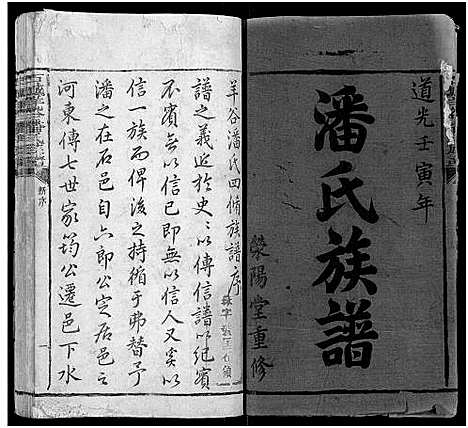 道光壬寅年
潘氏族譜
滎陽堂重修
羊谷潘氏四脩族譜序
譜之義近於史史以傳信譜以紀實
不實無以信已即無以信人又奚以
信一族而俾後之持循于弗替予
潘之在石邑自六郎公定居邑之
河東傳七世家筠公遷邑下水
新序